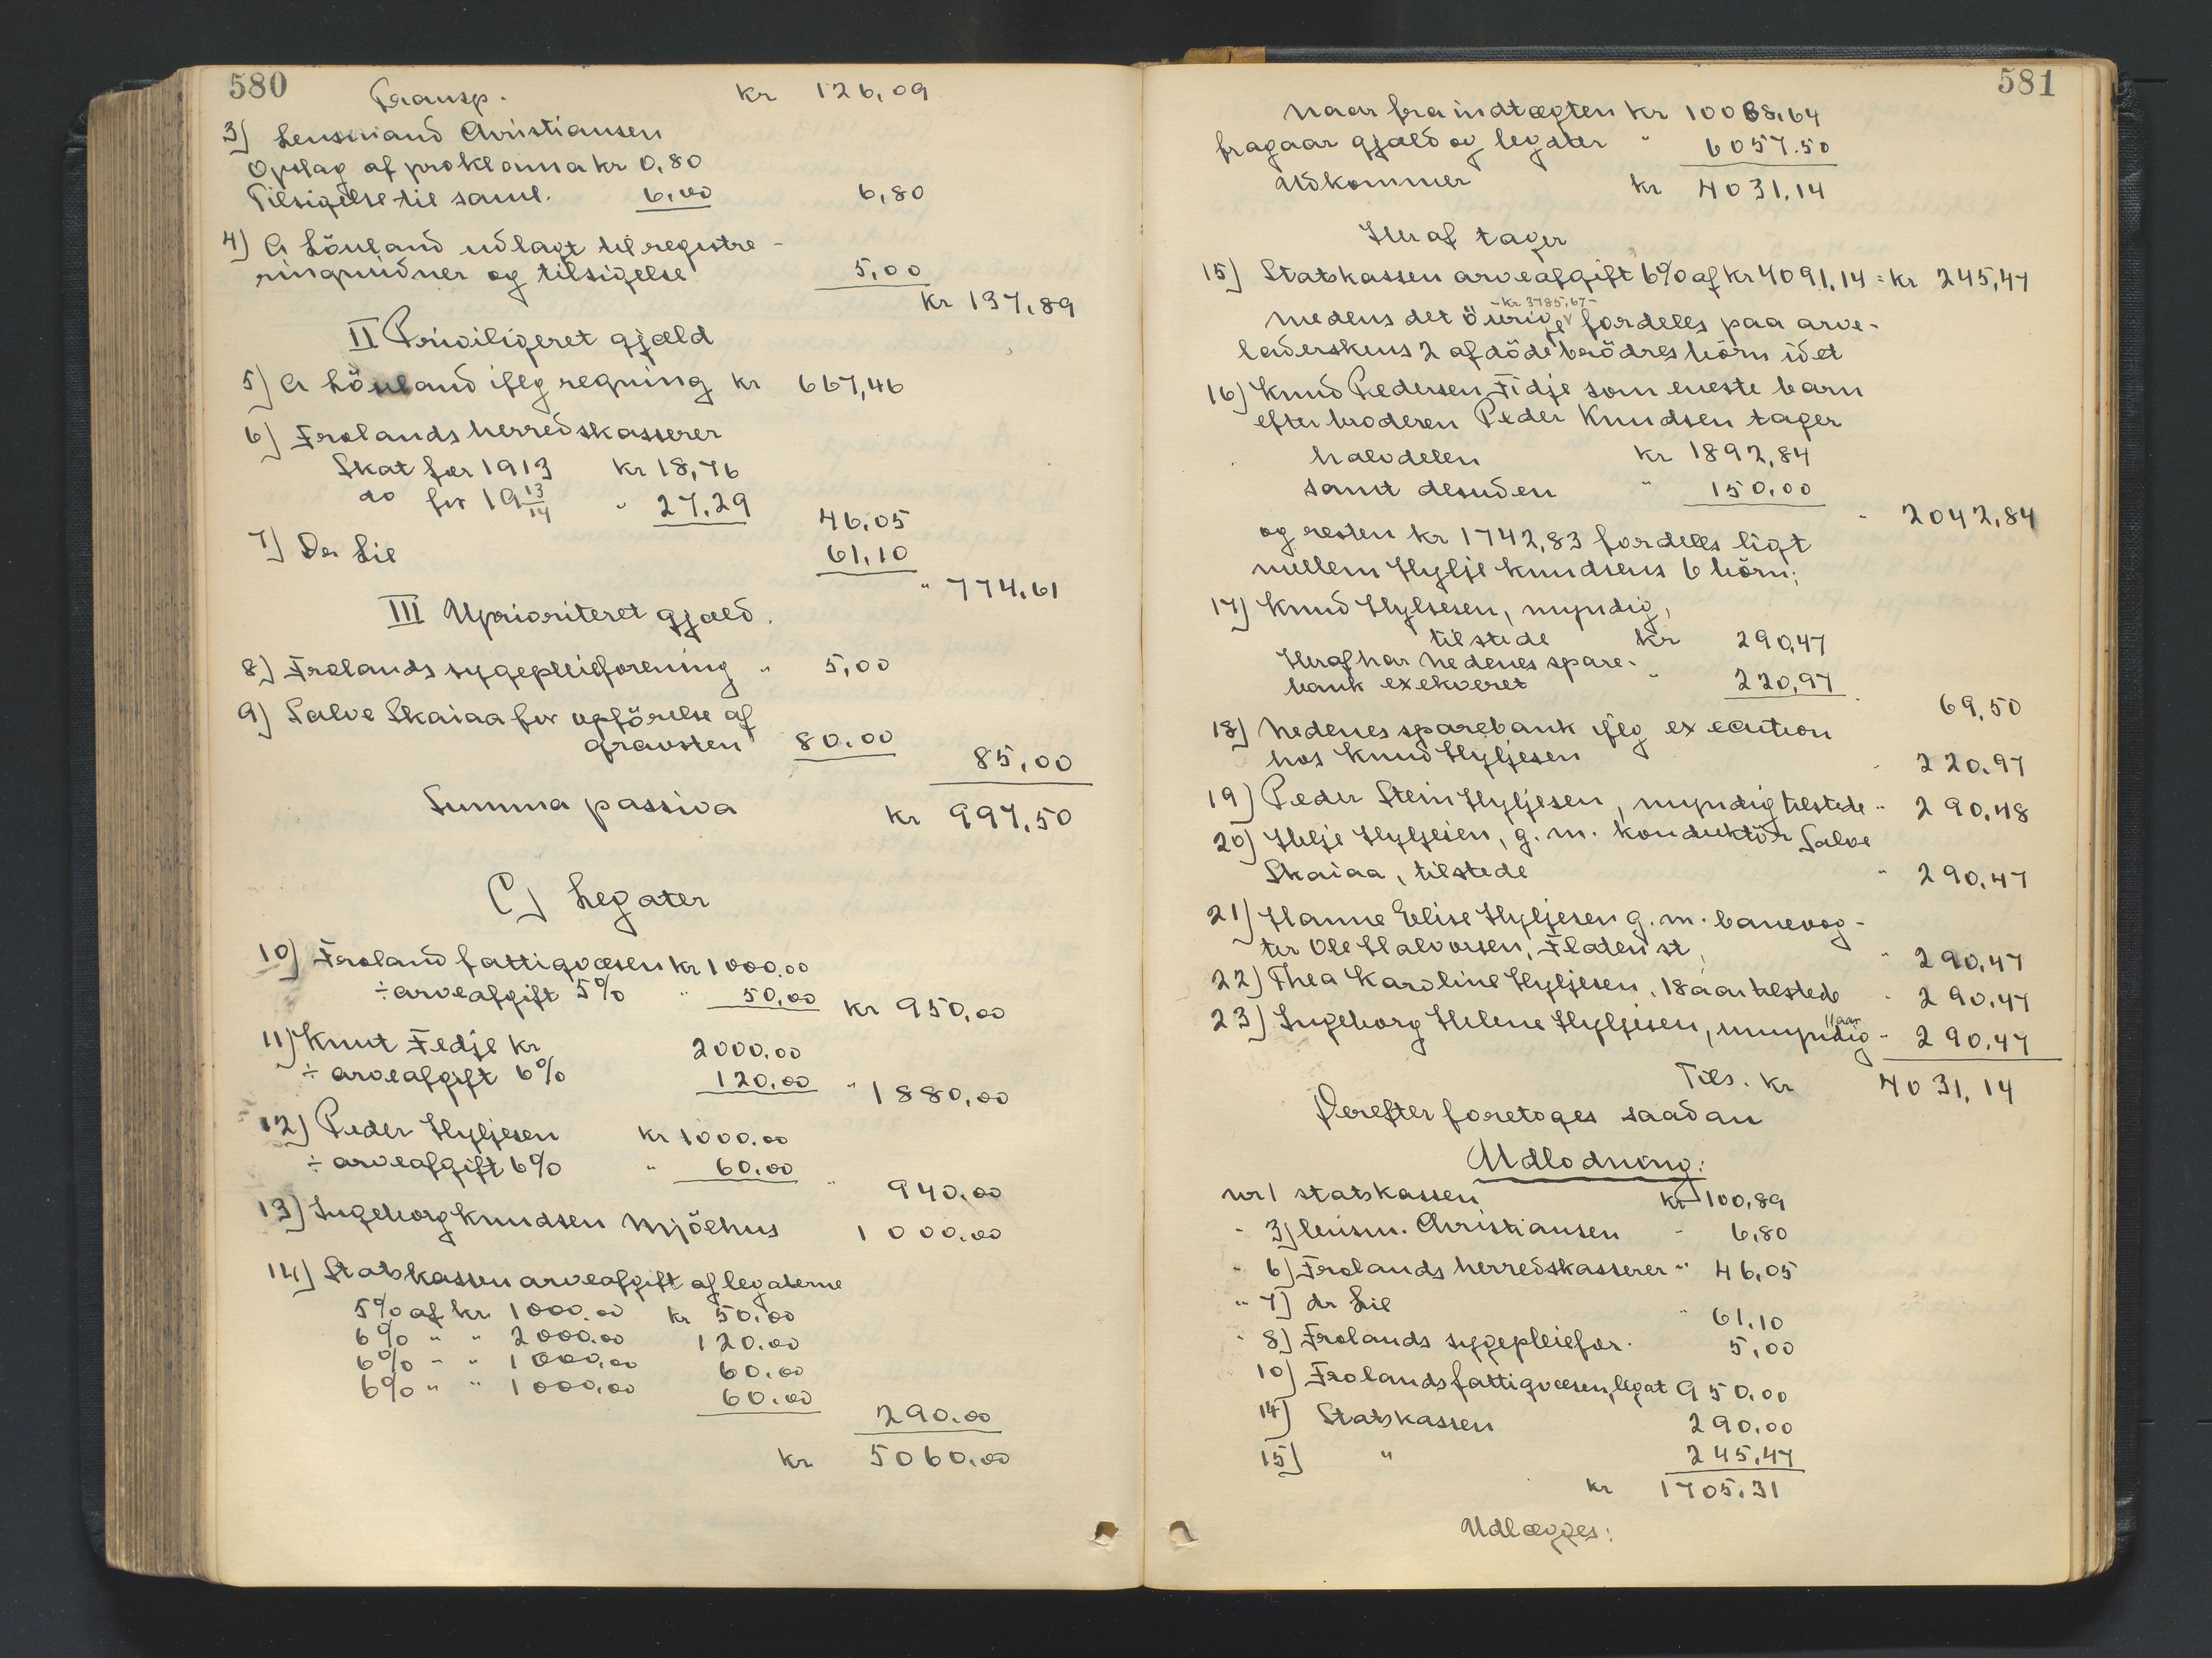 580
Transp. kr 126,09
3) Lensmand Christiansen
Opslag af proklama kr 0,80
Tilsigelse til saml. 6,00 6,80
4) A Löuland udlagt til registre-
ringsvidner og tilsigelse 5,00
kr 137,89
II Priviligeret gjæld
5) A Löuland iflg regning kr 667,46
6) Frolands herredskasserer
Skat for 1913 kr 18,76
do for 19 13/14 " 27,29
46,05
7) Dr Lie 61,10
" 774,61
III Uprioriteret gjæld.
8) Frolands sygepleieforening " 5,00
9) Salve Skaiaa for opförelse af
gravsten 80.00
85,00
Summa passiva kr 997,50
C) Legater
10) Froland fattigvæsen kr 1000.00
÷ arveafgift 5% " 50,00 kr 950,00
11) Knut Fedje kr 2000.00
÷ arveafgift 6% 120.00 " 1880,00
12) Peder Hyljesen kr 1000.00
÷ arveafgift 6% " 60.00
" 940,00
13) Ingeborg Knudsen Mjölhus 1000.00
14) Statskassen arveafgift af legaterne
5% af kr 1000.00 kr 50.00
6% " " 2000.00 120.00
6% " " 1000.00 60.00
6% " " 1000.00 60.00
290.00
kr 5060.00
581
Naar fra indtægten kr 10088,64
fragaar gjæld og legater " 6057.50
Udkommer kr 4031,14
Heraf tager
15) Statskassen arveafgift 6% af kr 4091,14 = kr 245,47
- kr 3785,67 -
medens det övrige fordeles paa arve-
laderskens 2 afdöde brödres börn idet
16) Knud Pedersen Fidje som eneste barn
efter broderen Peder Knudsen tager
halvdelen kr 1892,84
samt desuden " 150,00
" 2042,84
og resten kr 1742,83 fordeles ligt
mellem Hylje Knudsens 6 börn:
17) Knud Hyljesen, myndig,
tilstede kr 290,47
Heraf har Nedenes spare-
bank exekveret " 220,97
69,50
18) Nedenes sparebank iflg execution
hos Knud Hyljesen " 220.97
19) Peder Stein Hyljesen, myndig tilstede " 290,48
20) Helje Hyljesen, g. m. konduktör Salve
Skaiaa, tilstede " 290,47
21) Hanne Elise Hyljesen g. m. banevog-
ter Ole Halvorsen, Flaten st, " 290,47
22) Thea Karoline Hyljesen, 18 aar tilstede " 290.47
11 aar
23) Ingeborg Helene Hyljesen, umyndig " 290.47
Tils. kr 4031,14
Derefter foretoges saadan
Udlodning:
nr 1 statskassen kr 100,89
" 3) lensm. Christiansen " 6,80
" 6) Frolands herredskasserer " 46,05
" 7) dr Lie " 61,10
" 8) Frolands sygepleiefor. 5,00
10) Frolands fattigvæsen, legat 950.00
14) Statskassen 290.00
15) " 245,47
kr 1705,31
Udlægges: